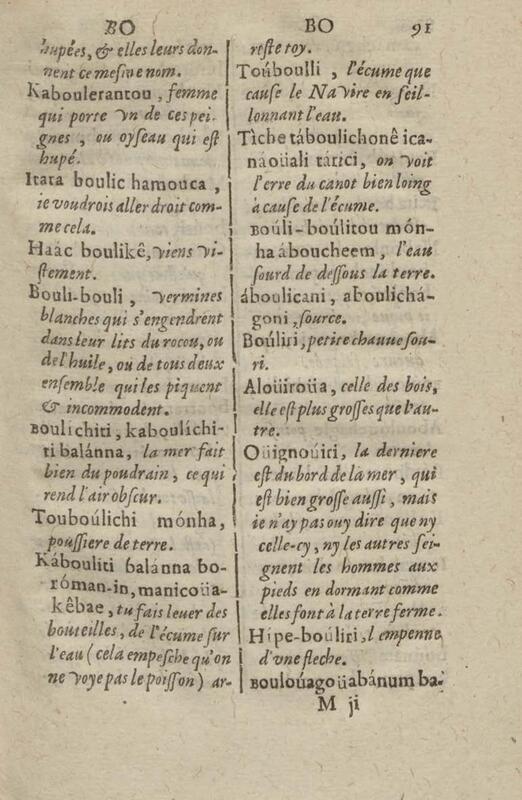 BO
hupées, & elles leurs don-
nent ce mesme nom.
Kaboulerantou, femme
qui porte vn de ces pei-
gnes, ou oyseau qui est
hupé.
Itara boulic hamouca,
ie voudrois aller droit com-
me cela.
Haàc boulikê, viens vi-
stement.
Bouli-bouli, vermines
blanches qui s'engendrent
dans leur lits du rocou, ou
de l'huile, ou de tous deux
ensemble qui les piquent
& incommodent.
BOULíchiti, kaboulíchi-
ti balánna, la mer fait
bien du poudrain, ce qui
rend l'air obscur.
Touboúlichi mónha,
poussiere de terre.
Kábouliti balánna bo-
róman-in, manicoüa-
kêbae, tu fais leuer des
bouteilles, de l'écume sur
l'eau (cela empesche qu'on
ne voye pas le poisson) ar-
BO 91
reste toy.
Toúboulli, l'écume que
cause le Navire en seil-
lonnant l'eau.
Tìche táboulichonê ica-
náoüali tárici, on voit
l'erre du canot bien loing
à cause de l'écume.
BOúli-boúlitou món-
ha áboucheem, l'eau
sourd de dessous la terre.
áboulicani, aboulichá-
goni, source.
Boúliri, petite chauue sou-
ri.
Aloüiroüa, celle des bois,
elle est plus grosses que l'au-
tre.
Oüignoüiti, la derniere
est du bord de la mer, qui
est bien grosse aussi, mais
ie n'ay pas ouy dire que ny
celle-cy, ny les autres sei-
gnent les hommes aux
pieds en dormant comme
elles font à la terre ferme.
Hipe-boúliri, l empenne
d'vne fleche.
BOULOúagoüabánum ba-
M ji